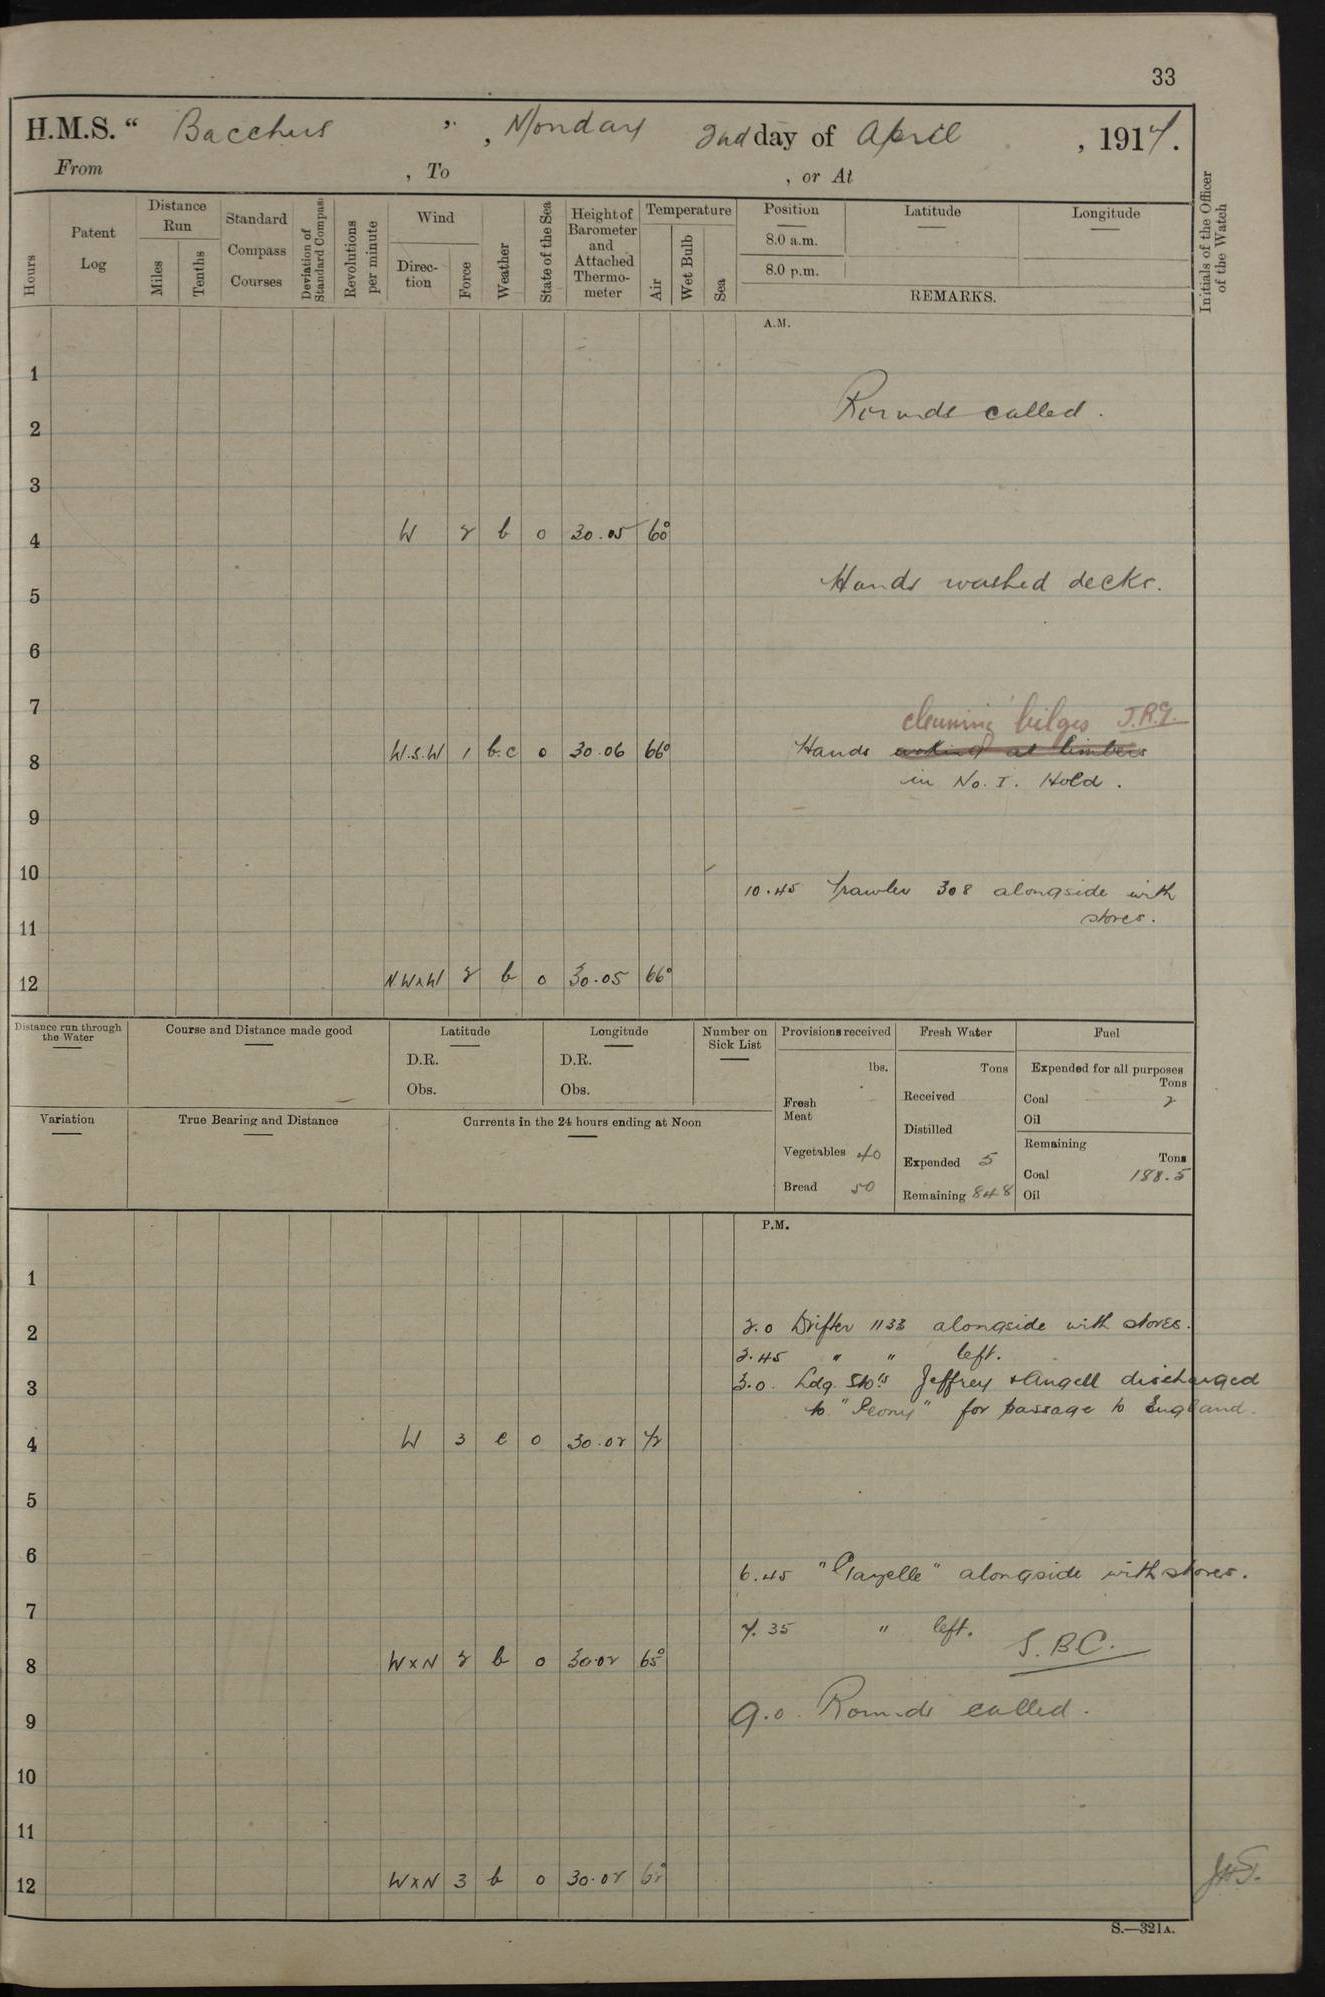 33
H.M.S. “ Bacchus ” , Monday 2nd day of April , 1917.
From , To , or At
Hours
Patent Log
Distance Run
Miles
Tenths
Standard Compass Courses
Deviation of Standard Compass
Revolutions per minute
Wind
Direction
Force
Weather
State of the Sea
Height of Barometer and Attached Thermometer
Temperature
Air
Wet Bulb
Sea
Position
Latitude
Longitude
8.0 a.m.
8.0 p.m.
REMARKS.
Initials of the Officer of the Watch
A.M.
1
Rounds called.
2
3
4 W 2 b 0 30.05 60°
Hands washed decks.
5
6
7
cleaning bilges J.R.G.
8 W.S.W 1 b.c 0 30.06 66° Hands working at limbers
in No. I. Hold.
9
10
10.45 Trawler 308 alongside with
stores.
11
12 N.WxW 2 b 0 30.05 66°
Distance run through the Water
Course and Distance made good
Latitude
D.R.
Obs.
Longitude
D.R.
Obs.
Number on Sick List
Provisions received
lbs.
Fresh Meat
Vegetables 40
Bread 50
Fresh Water
Tons
Received
Distilled
Expended 5
Remaining 848
Fuel
Expended for all purposes
Tons
Coal 2
Oil
Remaining
Tons
Coal 188.5
Oil
Variation
True Bearing and Distance
Currents in the 24 hours ending at Noon
P.M.
1
2 2.0 Drifter 1133 alongside with stores.
2.45 " " left.
3 3.0. Ldg. Sto:s Jeffrey & Angell discharged
to "Peony" for passage to England.
4 W 3 c 0 30.02 72
5
6
6.45 "Gazelle" alongside with stores.
7
7.35 " left. S.B.C.
8 WxN 2 b 0 30.02 65°
9 9.0. Rounds called.
10
11
12 WxN 3 b 0 30.02
S.—321A.